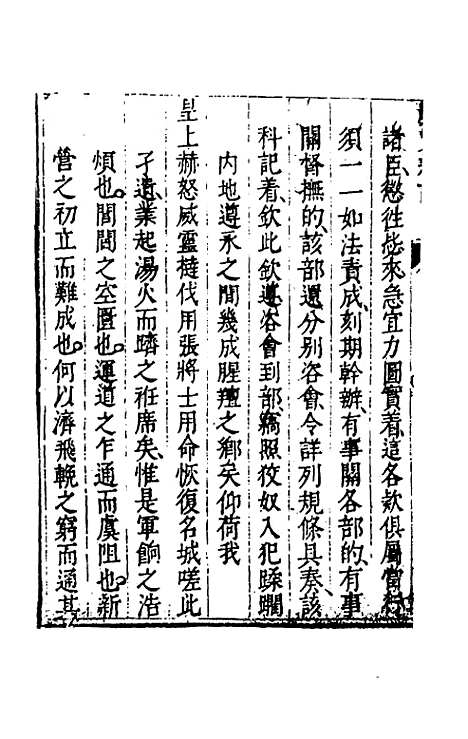 諸臣懲往毖來急宜力圖實着這各欵俱屬當行
須一一如法責成刻期幹辦有事關各部的有事
關督撫的該部還分别咨會令詳列規條具奏該
科記着欽此欽遵咨會到部竊照狡奴入犯蹂躙
内地遵永之間幾成腥羶之鄉矣仰荷我
皇上赫怒威靈撻伐用張將士用命恢復名城嗟此
孑遺業起湯火而躋之袵席矣惟是軍餉之浩
煩也閭閻之空匱也運道之乍通而虞阻也新
營之初立而難成也何以濟飛輓之窮而通其